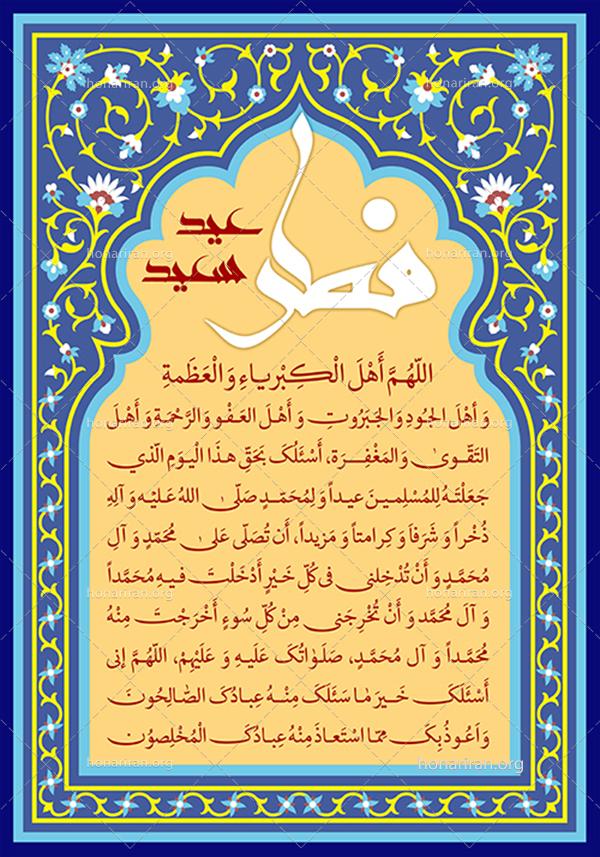 عید
سعید
فطر
اللّهُمَّ أَهْلَ الْكِبْرِیاءِ وَ الْعَظَمةِ
وَ أهْلَ الجُودِ وَ الجَبَرُوتِ وَ أَهْلَ العَفْوِ وَ الرَّحْمَةِ وَ أَهْلَ
التَقّوىٰ وَ المَغْفِرَةِ، أَسْئَلُکَ بَحَقِّ هذَا الْیَومِ الّذي
جَعَلتَهُ لِلمُسْلِمینَ عیداً وَ لِمُحَمَّدٍ صَلَّی اللهُ عَلَیْه وَ آلِهِ
ذُخْراً وَ شَرَفاً وَ کِرامتاً وَ مَزیداً، أَن تُصَلّی عَلیٰ مُحَمَّدٍ وَ آلِ
مُحَمَّدٍ وَ أَنْ تُدْخِلنی فی کُلِّ خَیْرٍ أَدْخَلْتَ فیهِ مُحَمَّداً
وَ آلَ مُحَمَّد وَ أَنْ تُخْرِجَنی مِنْ کُلِّ سُوءٍ أَخْرَجْتَ مِنْهُ
مُحَمَّداً وَ آل مُحَمَّدٍ، صَلَواتُکَ عَلَیهِ وَ عَلَیْهِمْ، اللّهُمَّ إنی
أَسْئَلُکَ خَیرَ مٰا سَئَلَکَ مِنْهُ عِبادُکَ الصّالِحُونَ
وَ اَعُوذُ بِکَ مِمّا اسْتَعاذَ مِنْهُ عِبادُکَ الْمُخْلِصوُن
honariran.org